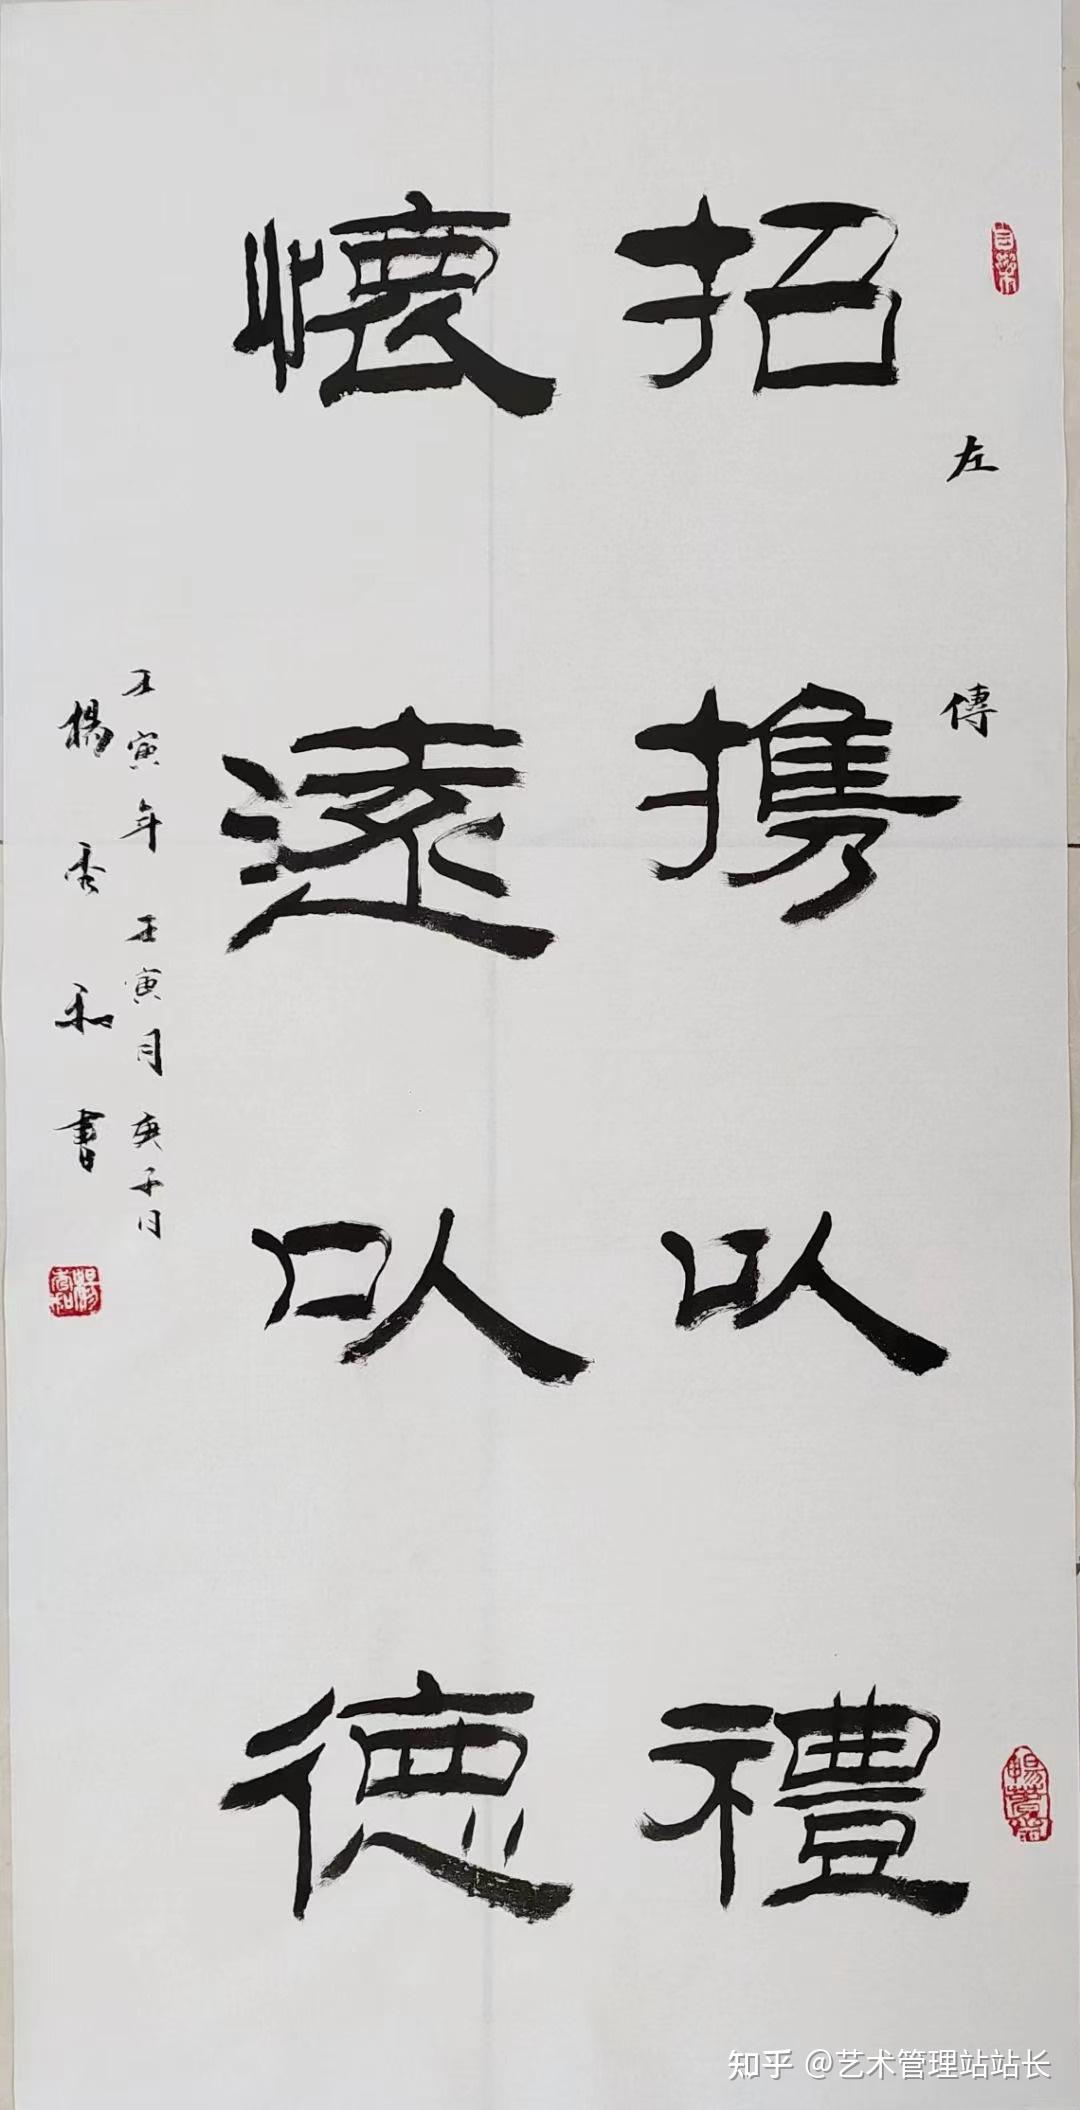 左傳
招攜以禮
懷遠以德
壬寅年壬寅月庚子日
楊秀和書
楊秀和
知乎 @艺术管理站站长